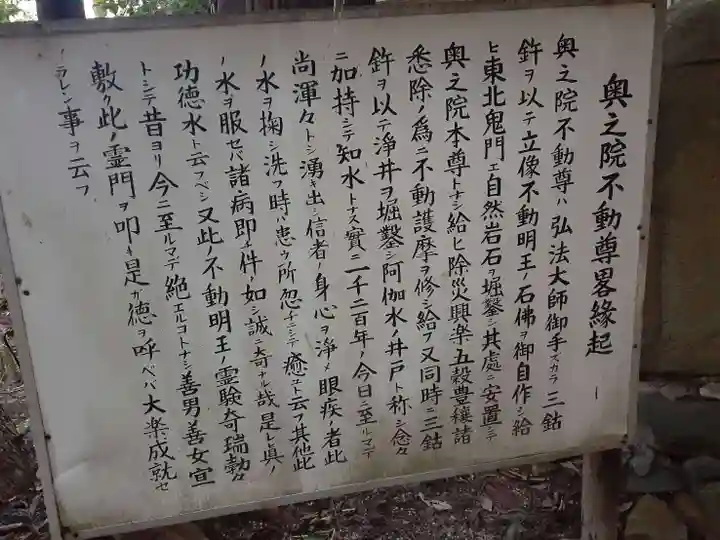 奥之院不動尊畧縁起
奥之院不動尊ハ弘法大師御手ズカラ三鈷
鈝ヲ以テ立像不動明王ノ石佛ヲ御自作シ給
ヒ東北鬼門エ自然岩石ヲ堀鑿シ其處ニ安置シテ
奥之院本尊トナシ給ヒ除災興楽五穀豊穣諸
悉除ノ為ニ不動護摩ヲ修シ給フ又同時ニ三鈷
鈝ヲ以テ浄井ヲ堀鑿シ阿伽水ノ井戸ト称シ念々
ニ加持シテ知水トナス實ニ一千二百年ノ今日ニ至ルマデ
尚渾々トシ湧キ出シ信者ノ身心ヲ浄メ眼疾ノ者此
ノ水ヲ掬シ洗フ時ハ患ウ所忽チニシテ癒ユト云フ其他此
ノ水ヲ服セバ諸病即チ件ノ如シ誠ニ奇ナル哉是レ眞ノ
功徳水ト云フベシ又此ノ不動明王ノ霊験奇瑞勲々
トシテ昔ヨリ今ニ至ルマデ絶エルコトナシ善男善女宣
敷ク此ノ霊門ヲ叩キ是ガ徳ヲ呼ベバ大楽成就セ
ラレン事ヲ云フ